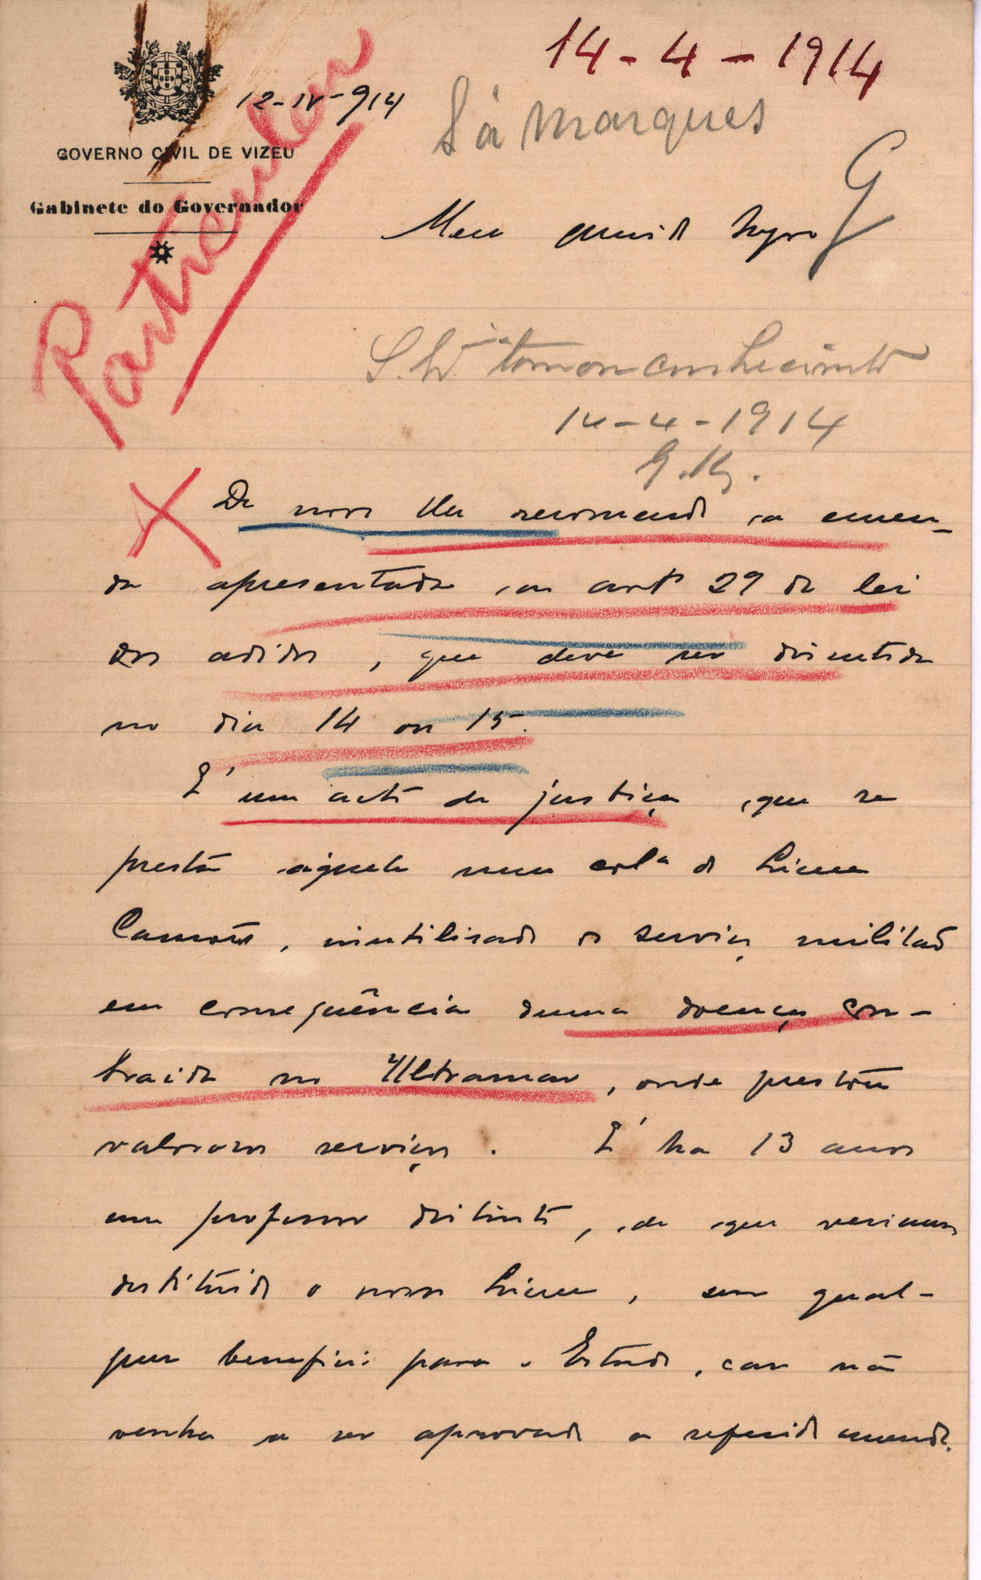 14-4-1914
12-IV-914
Sá Marques
GOVERNO CIVIL DE VIZEU
Gabinete do Governador
Particular
G
Meu querido
tomou conhecimento
14-4-1914
De novo lhe recomendo a emen-
da apresentada ao artº 29 da lei
dos adidos, que deve ser discutida
no dia 14 ou 15.
É um acto de justiça, que se
presta àquele meu colª do Liceu
Camões, inutilisado no serviço militar
em consequência duma doença con-
traida no Ultramar, onde prestou
valiosos serviços. É ha 13 anos
um professor distinto, de que veriamos
destituido o nosso Liceu, sem qual-
quer beneficio para o Estado, caso não
venha a ser aprovada a referida emenda.